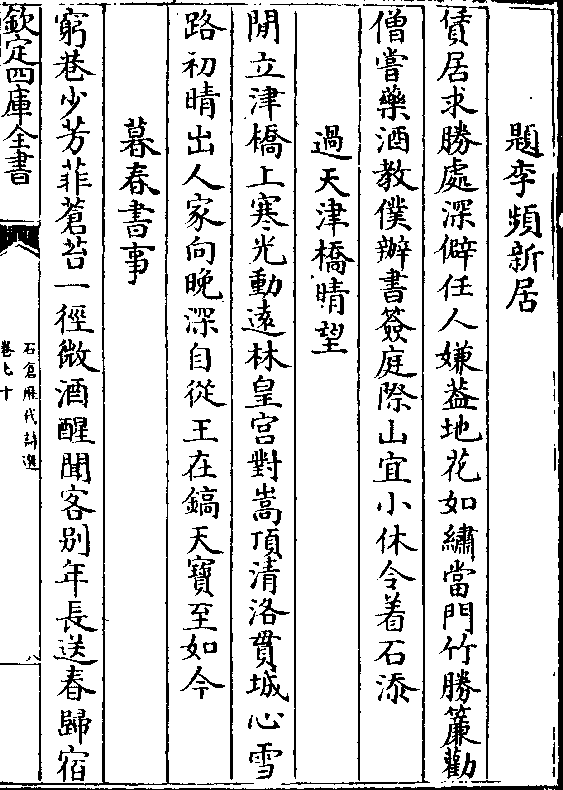 題李頻新居
賃居求勝處深僻任人嫌葢地花如繡當門竹勝簾勸
僧嘗藥酒教僕辦書簽庭際山宜小休令着石添
過天津橋晴望
閒立津橋上寒光動遠林皇宫對嵩頂清洛貫城心雪
路初晴出人家向晚深自從王在鎬天寶至如今
暮春書事
窮巷少芳菲蒼苔一徑微酒醒聞客别年長送春歸宿
欽定四庫全書
石倉厯代詩選
卷七十
八